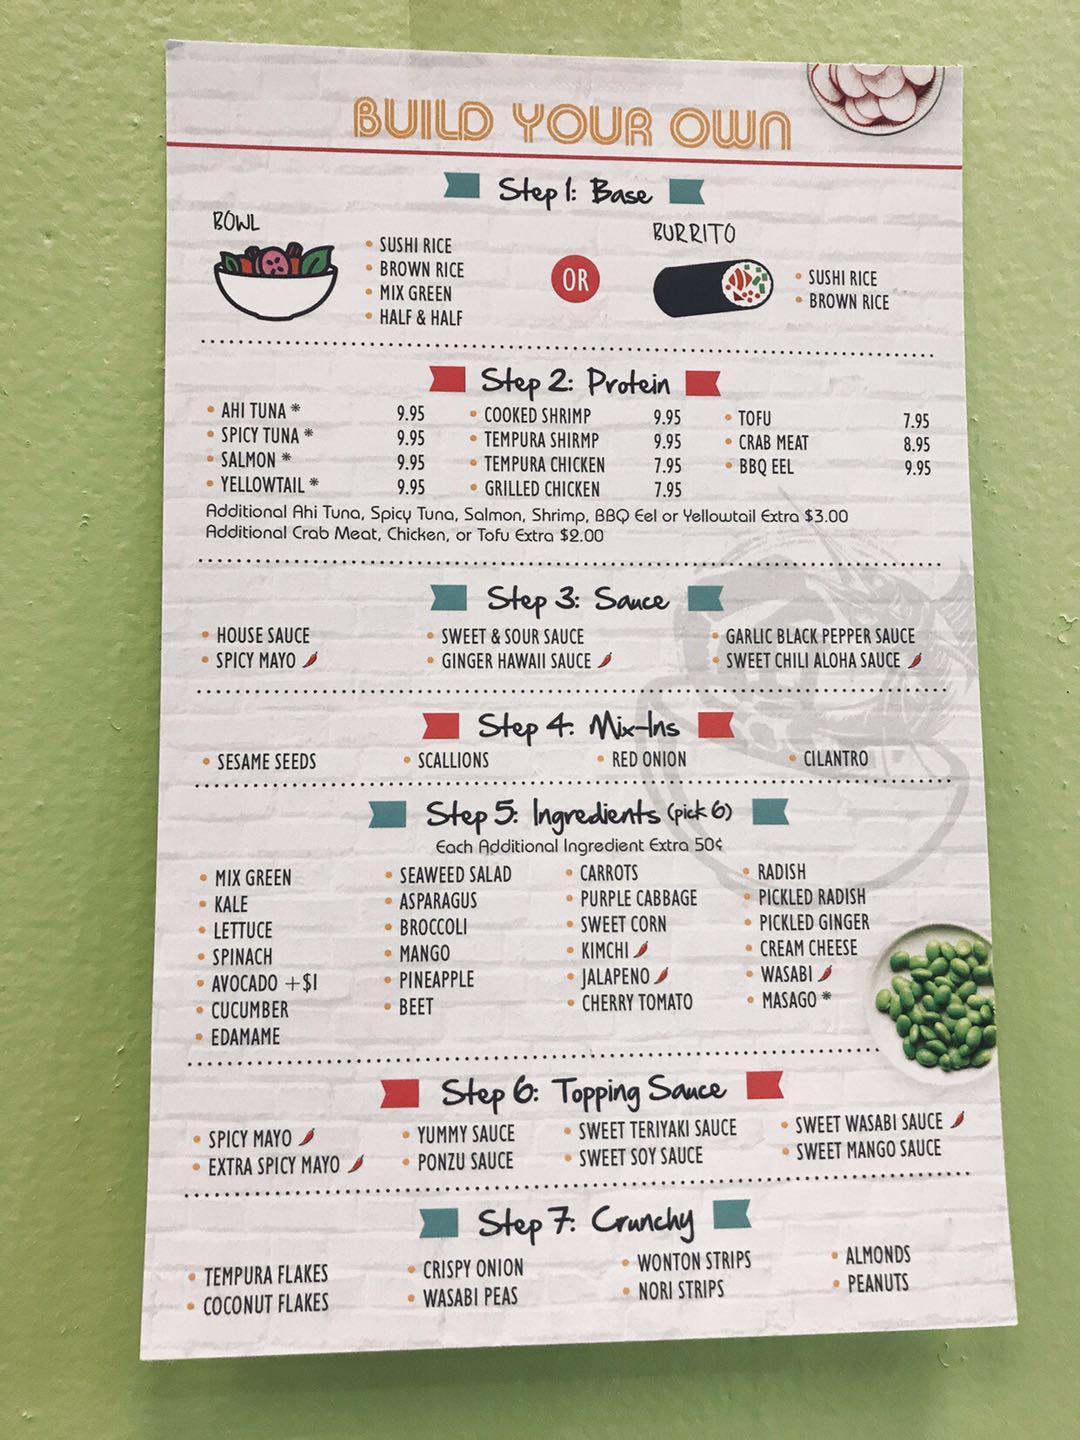 BUILD YOUR OWN
Step 1: Base
BOWL
SUSHI RICE
BROWN RICE
MIX GREEN
HALF & HALF
OR
BURRITO
SUSHI RICE
BROWN RICE
Step 2: Protein
AHI TUNA * 9.95
SPICY TUNA * 9.95
SALMON * 9.95
YELLOWTAIL * 9.95
COOKED SHRIMP 9.95
TEMPURA SHIRMP 9.95
TEMPURA CHICKEN 7.95
GRILLED CHICKEN 7.95
TOFU 7.95
CRAB MEAT 8.95
BBQ EEL 9.95
Additional Ahi Tuna, Spicy Tuna, Salmon, Shrimp, BBQ Eel or Yellowtail Extra $3.00
Additional Crab Meat, Chicken, or Tofu Extra $2.00
Step 3: Sauce
HOUSE SAUCE
SPICY MAYO
SWEET & SOUR SAUCE
GINGER HAWAII SAUCE
GARLIC BLACK PEPPER SAUCE
SWEET CHILI ALOHA SAUCE
Step 4: Mix-Ins
SESAME SEEDS
SCALLIONS
RED ONION
CILANTRO
Step 5: Ingredients (pick 6)
Each Additional Ingredient Extra 50¢
MIX GREEN
KALE
LETTUCE
SPINACH
AVOCADO +$1
CUCUMBER
EDAMAME
SEAWEED SALAD
ASPARAGUS
BROCCOLI
MANGO
PINEAPPLE
BEET
CARROTS
PURPLE CABBAGE
SWEET CORN
KIMCHI
JALAPENO
CHERRY TOMATO
RADISH
PICKLED RADISH
PICKLED GINGER
CREAM CHEESE
WASABI
MASAGO *
Step 6: Topping Sauce
SPICY MAYO
EXTRA SPICY MAYO
YUMMY SAUCE
PONZU SAUCE
SWEET TERIYAKI SAUCE
SWEET SOY SAUCE
SWEET WASABI SAUCE
SWEET MANGO SAUCE
Step 7: Crunchy
TEMPURA FLAKES
COCONUT FLAKES
CRISPY ONION
WASABI PEAS
WONTON STRIPS
NORI STRIPS
ALMONDS
PEANUTS